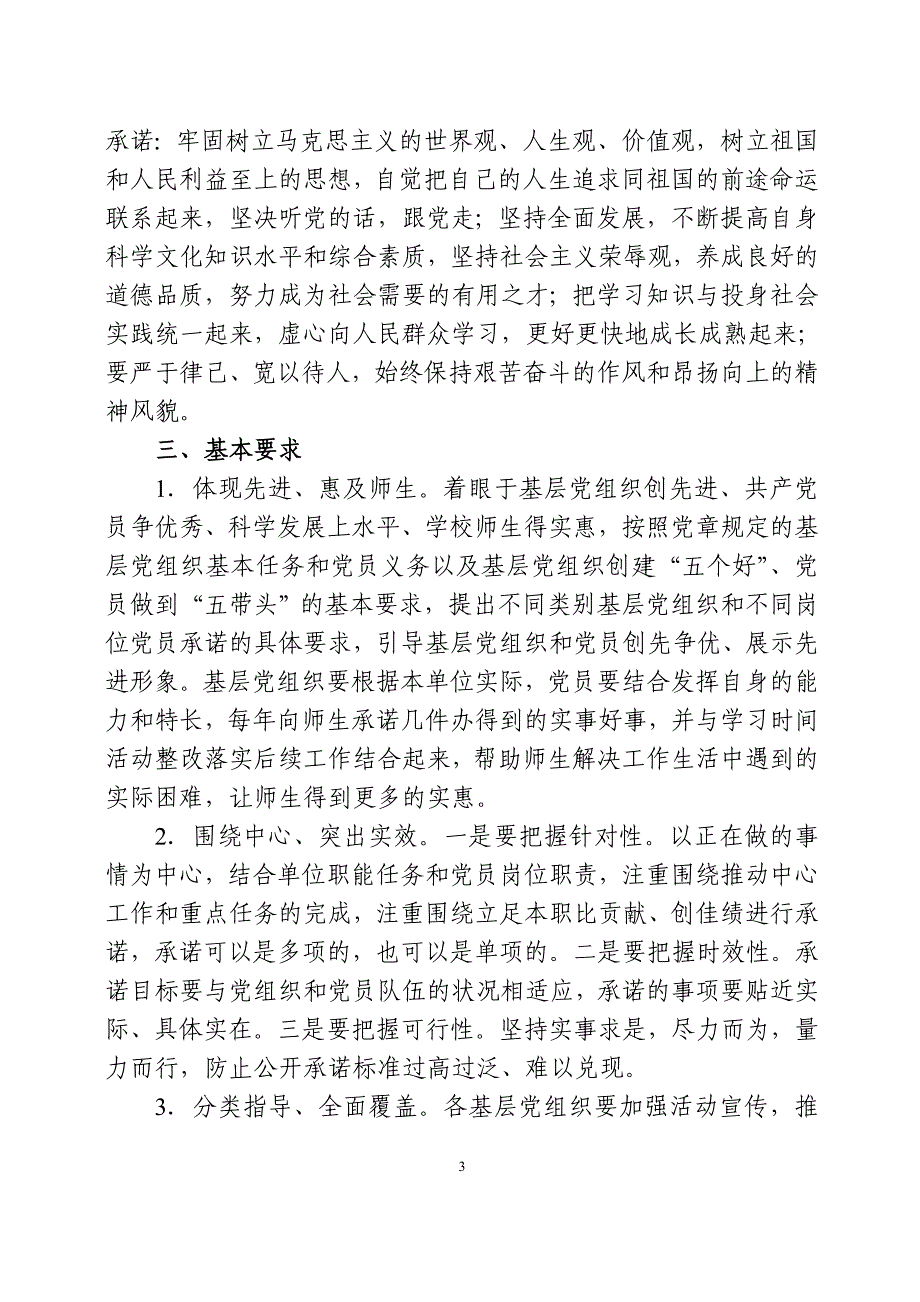 承诺：牢固树立马克思主义的世界观、人生观、价值观，树立祖国
和人民利益至上的思想，自觉把自己的人生追求同祖国的前途命运
联系起来，坚决听党的话，跟党走；坚持全面发展，不断提高自身
科学文化知识水平和综合素质，坚持社会主义荣辱观，养成良好的
道德品质，努力成为社会需要的有用之才；把学习知识与投身社会
实践统一起来，虚心向人民群众学习，更好更快地成长成熟起来；
要严于律己、宽以待人，始终保持艰苦奋斗的作风和昂扬向上的精
神风貌。
三、基本要求
1．体现先进、惠及师生。着眼于基层党组织创先进、共产党
员争优秀、科学发展上水平、学校师生得实惠，按照党章规定的基
层党组织基本任务和党员义务以及基层党组织创建“五个好”、党
员做到“五带头”的基本要求，提出不同类别基层党组织和不同岗
位党员承诺的具体要求，引导基层党组织和党员创先争优、展示先
进形象。基层党组织要根据本单位实际，党员要结合发挥自身的能
力和特长，每年向师生承诺几件办得到的实事好事，并与学习时间
活动整改落实后续工作结合起来，帮助师生解决工作生活中遇到的
实际困难，让师生得到更多的实惠。
2．围绕中心、突出实效。一是要把握针对性。以正在做的事
情为中心，结合单位职能任务和党员岗位职责，注重围绕推动中心
工作和重点任务的完成，注重围绕立足本职比贡献、创佳绩进行承
诺，承诺可以是多项的，也可以是单项的。二是要把握时效性。承
诺目标要与党组织和党员队伍的状况相适应，承诺的事项要贴近实
际、具体实在。三是要把握可行性。坚持实事求是，尽力而为，量
力而行，防止公开承诺标准过高过泛、难以兑现。
3．分类指导、全面覆盖。各基层党组织要加强活动宣传，推
3